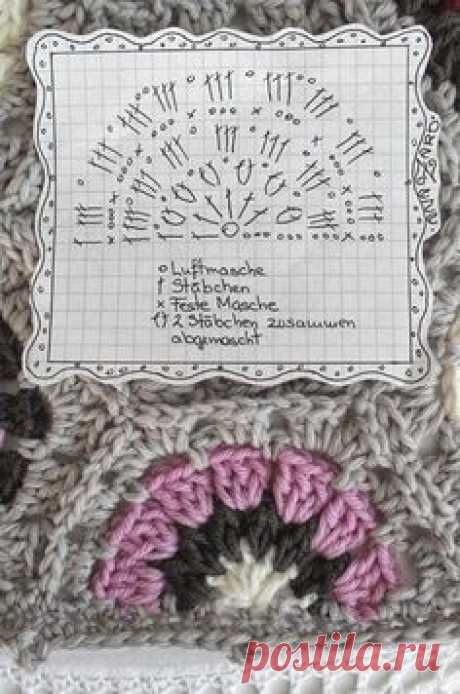 o Luftmasche
† Stäbchen
x Feste Masche
2 Stäbchen zusammen
abgemascht
postila.ru